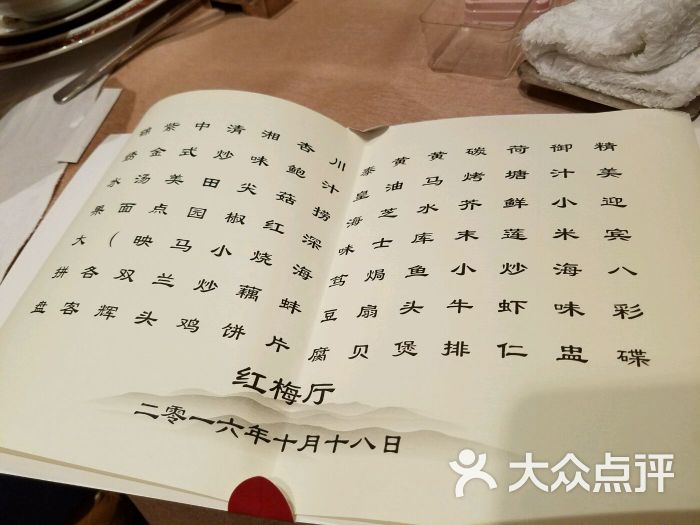 精美迎宾八彩碟
御汁小米海味盅
荷塘鲜莲炒虾仁
碳烤芥末小牛排
黄马水库鱼头煲
黄油芝士焗扇贝
泰皇海味笃豆腐
川汁捞深海蚌片
杏鲍菇红烧藕饼
湘味尖椒小炒鸡
清炒田园马兰头
中式美点映双辉
紫金汤面（各客
锦绣水果大拼盘
红梅厅
二零一六年十月十八日
大众点评